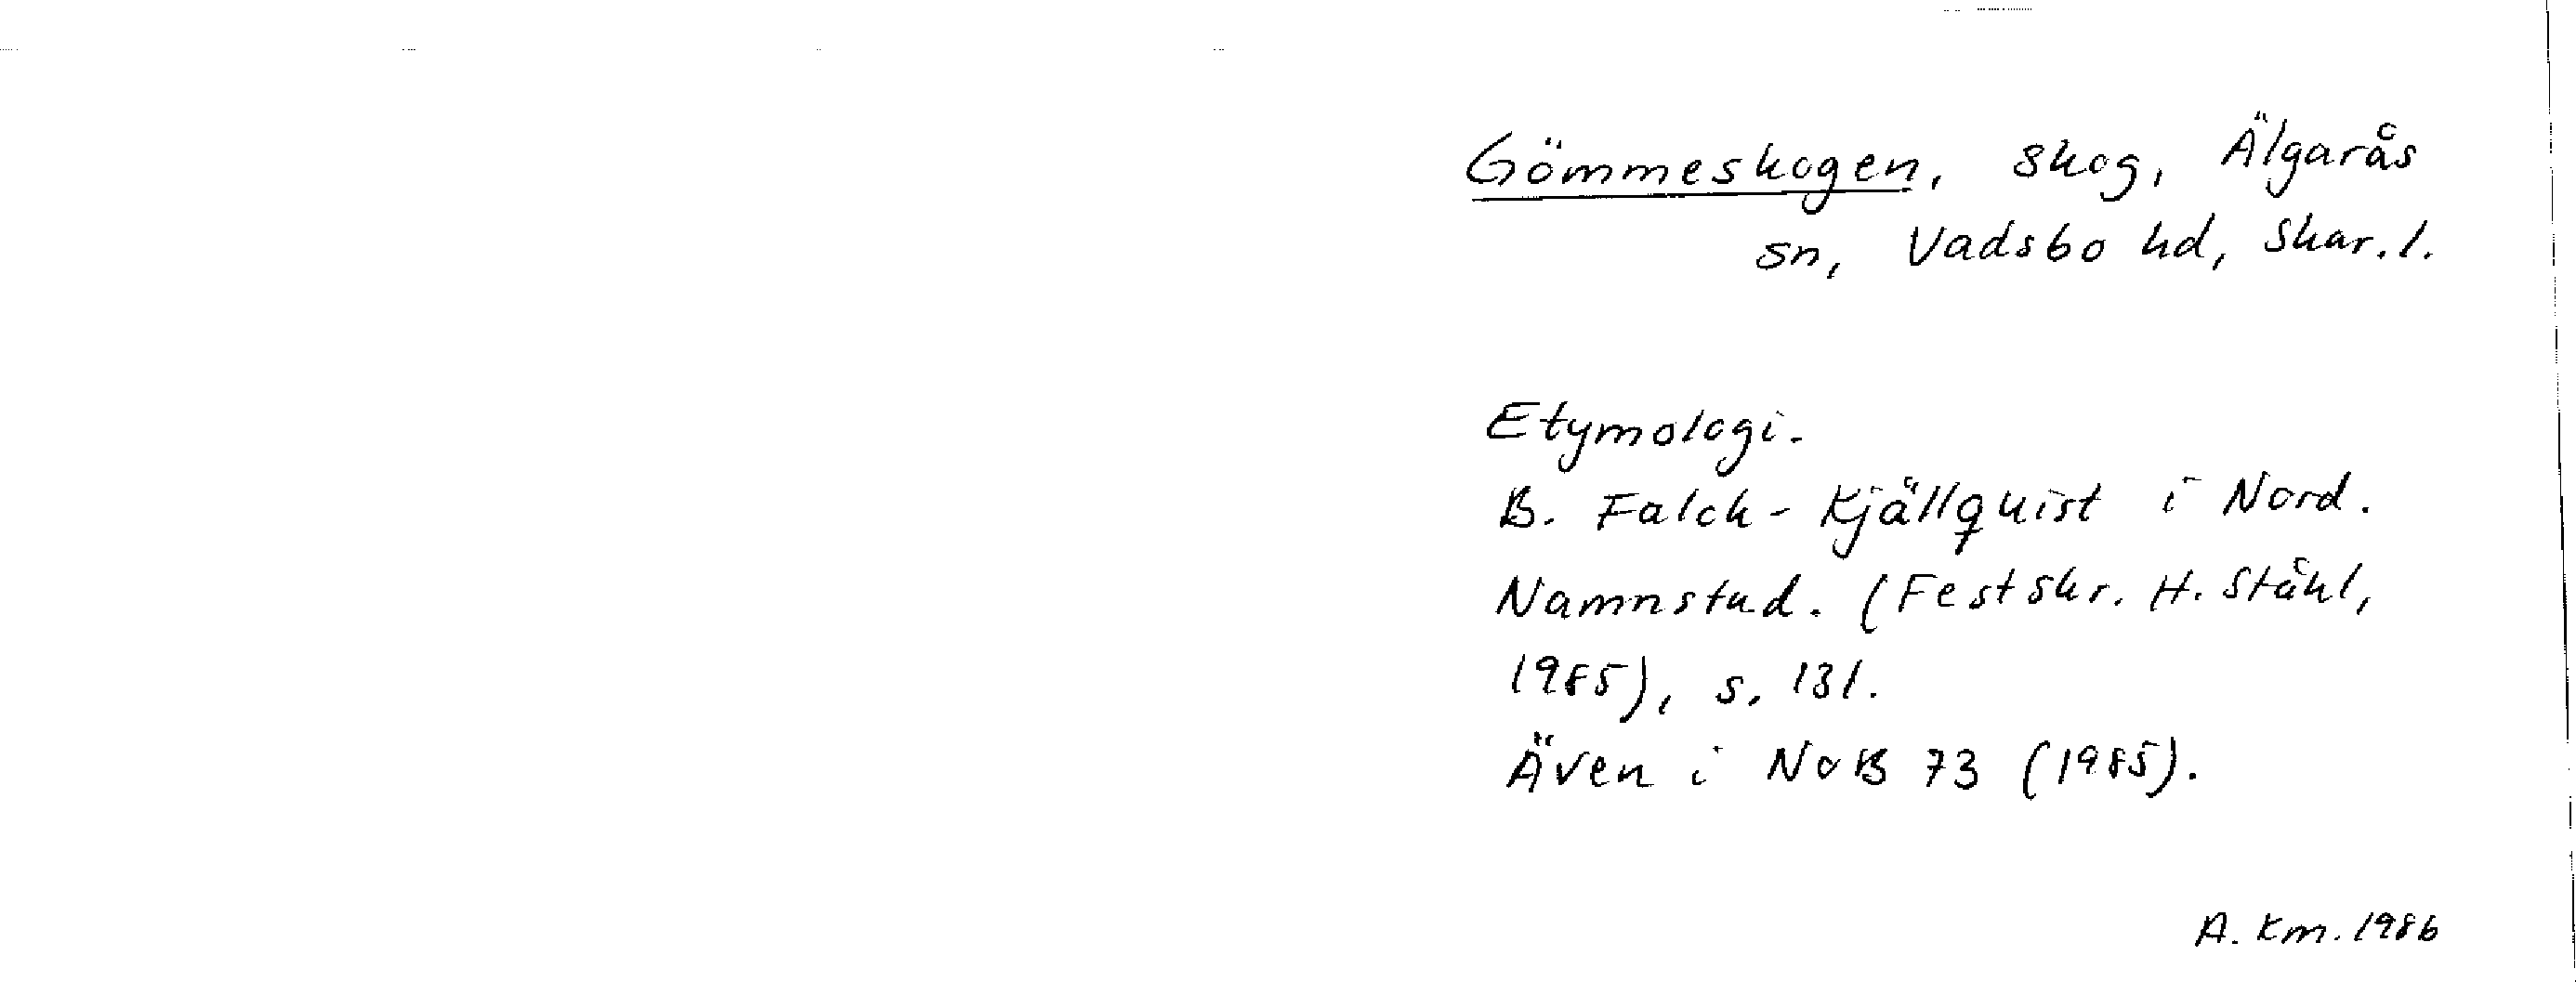 Gömmeskogen, skog, Älgarås
sn, Vadsbo hd, Skar. l.
Etymologi.
B. Falck-Kjällquist i Nord.
Namnstud. (Festskr. H. Ståhl,
1985), s. 131.
Även i NoB 73 (1985).
A. Km. 1986